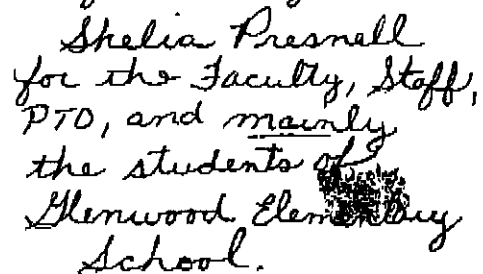 Shelia Presnell
for the Faculty, Staff,
PTO, and mainly
the students of
Glenwood Elementary
School.